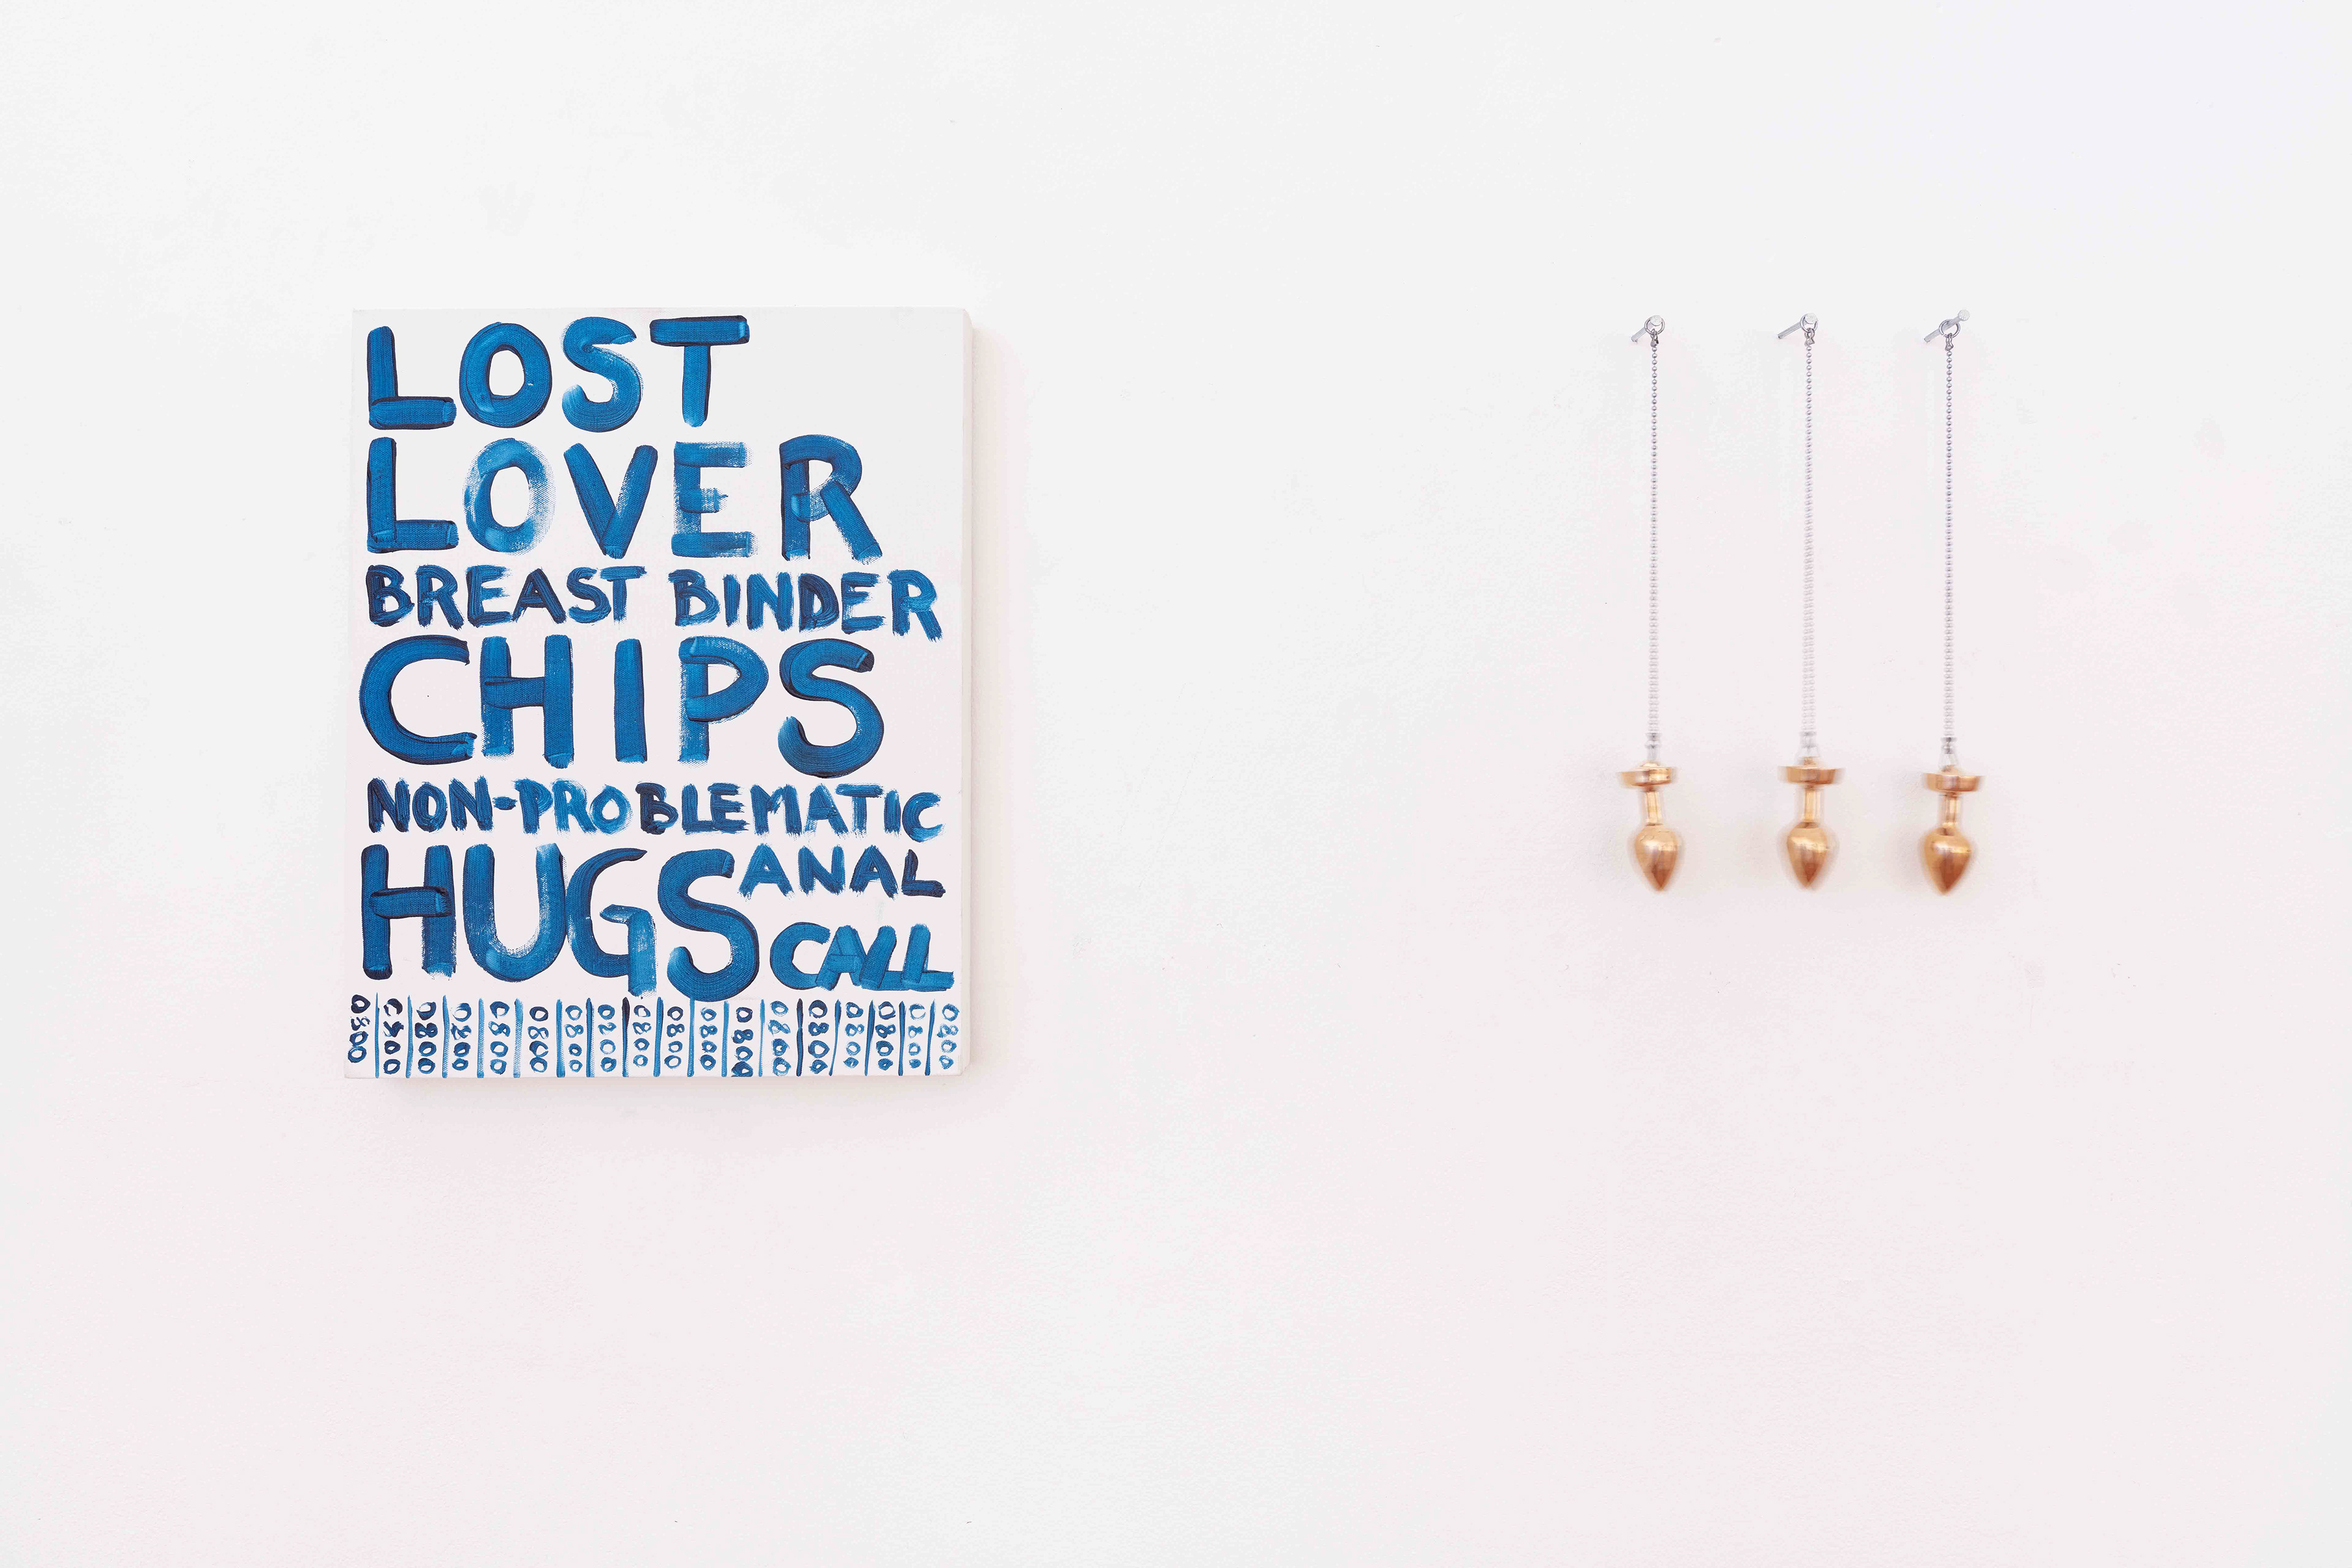 LOST
LOVER
BREAST BINDER
CHIPS
NON-PROBLEMATIC
HUGS ANAL
CALL
0800 0800 0800 0800 0800 0800 0800 0800 0800 0800 0800 0800 0800 0800 0800 0800 0800 0800